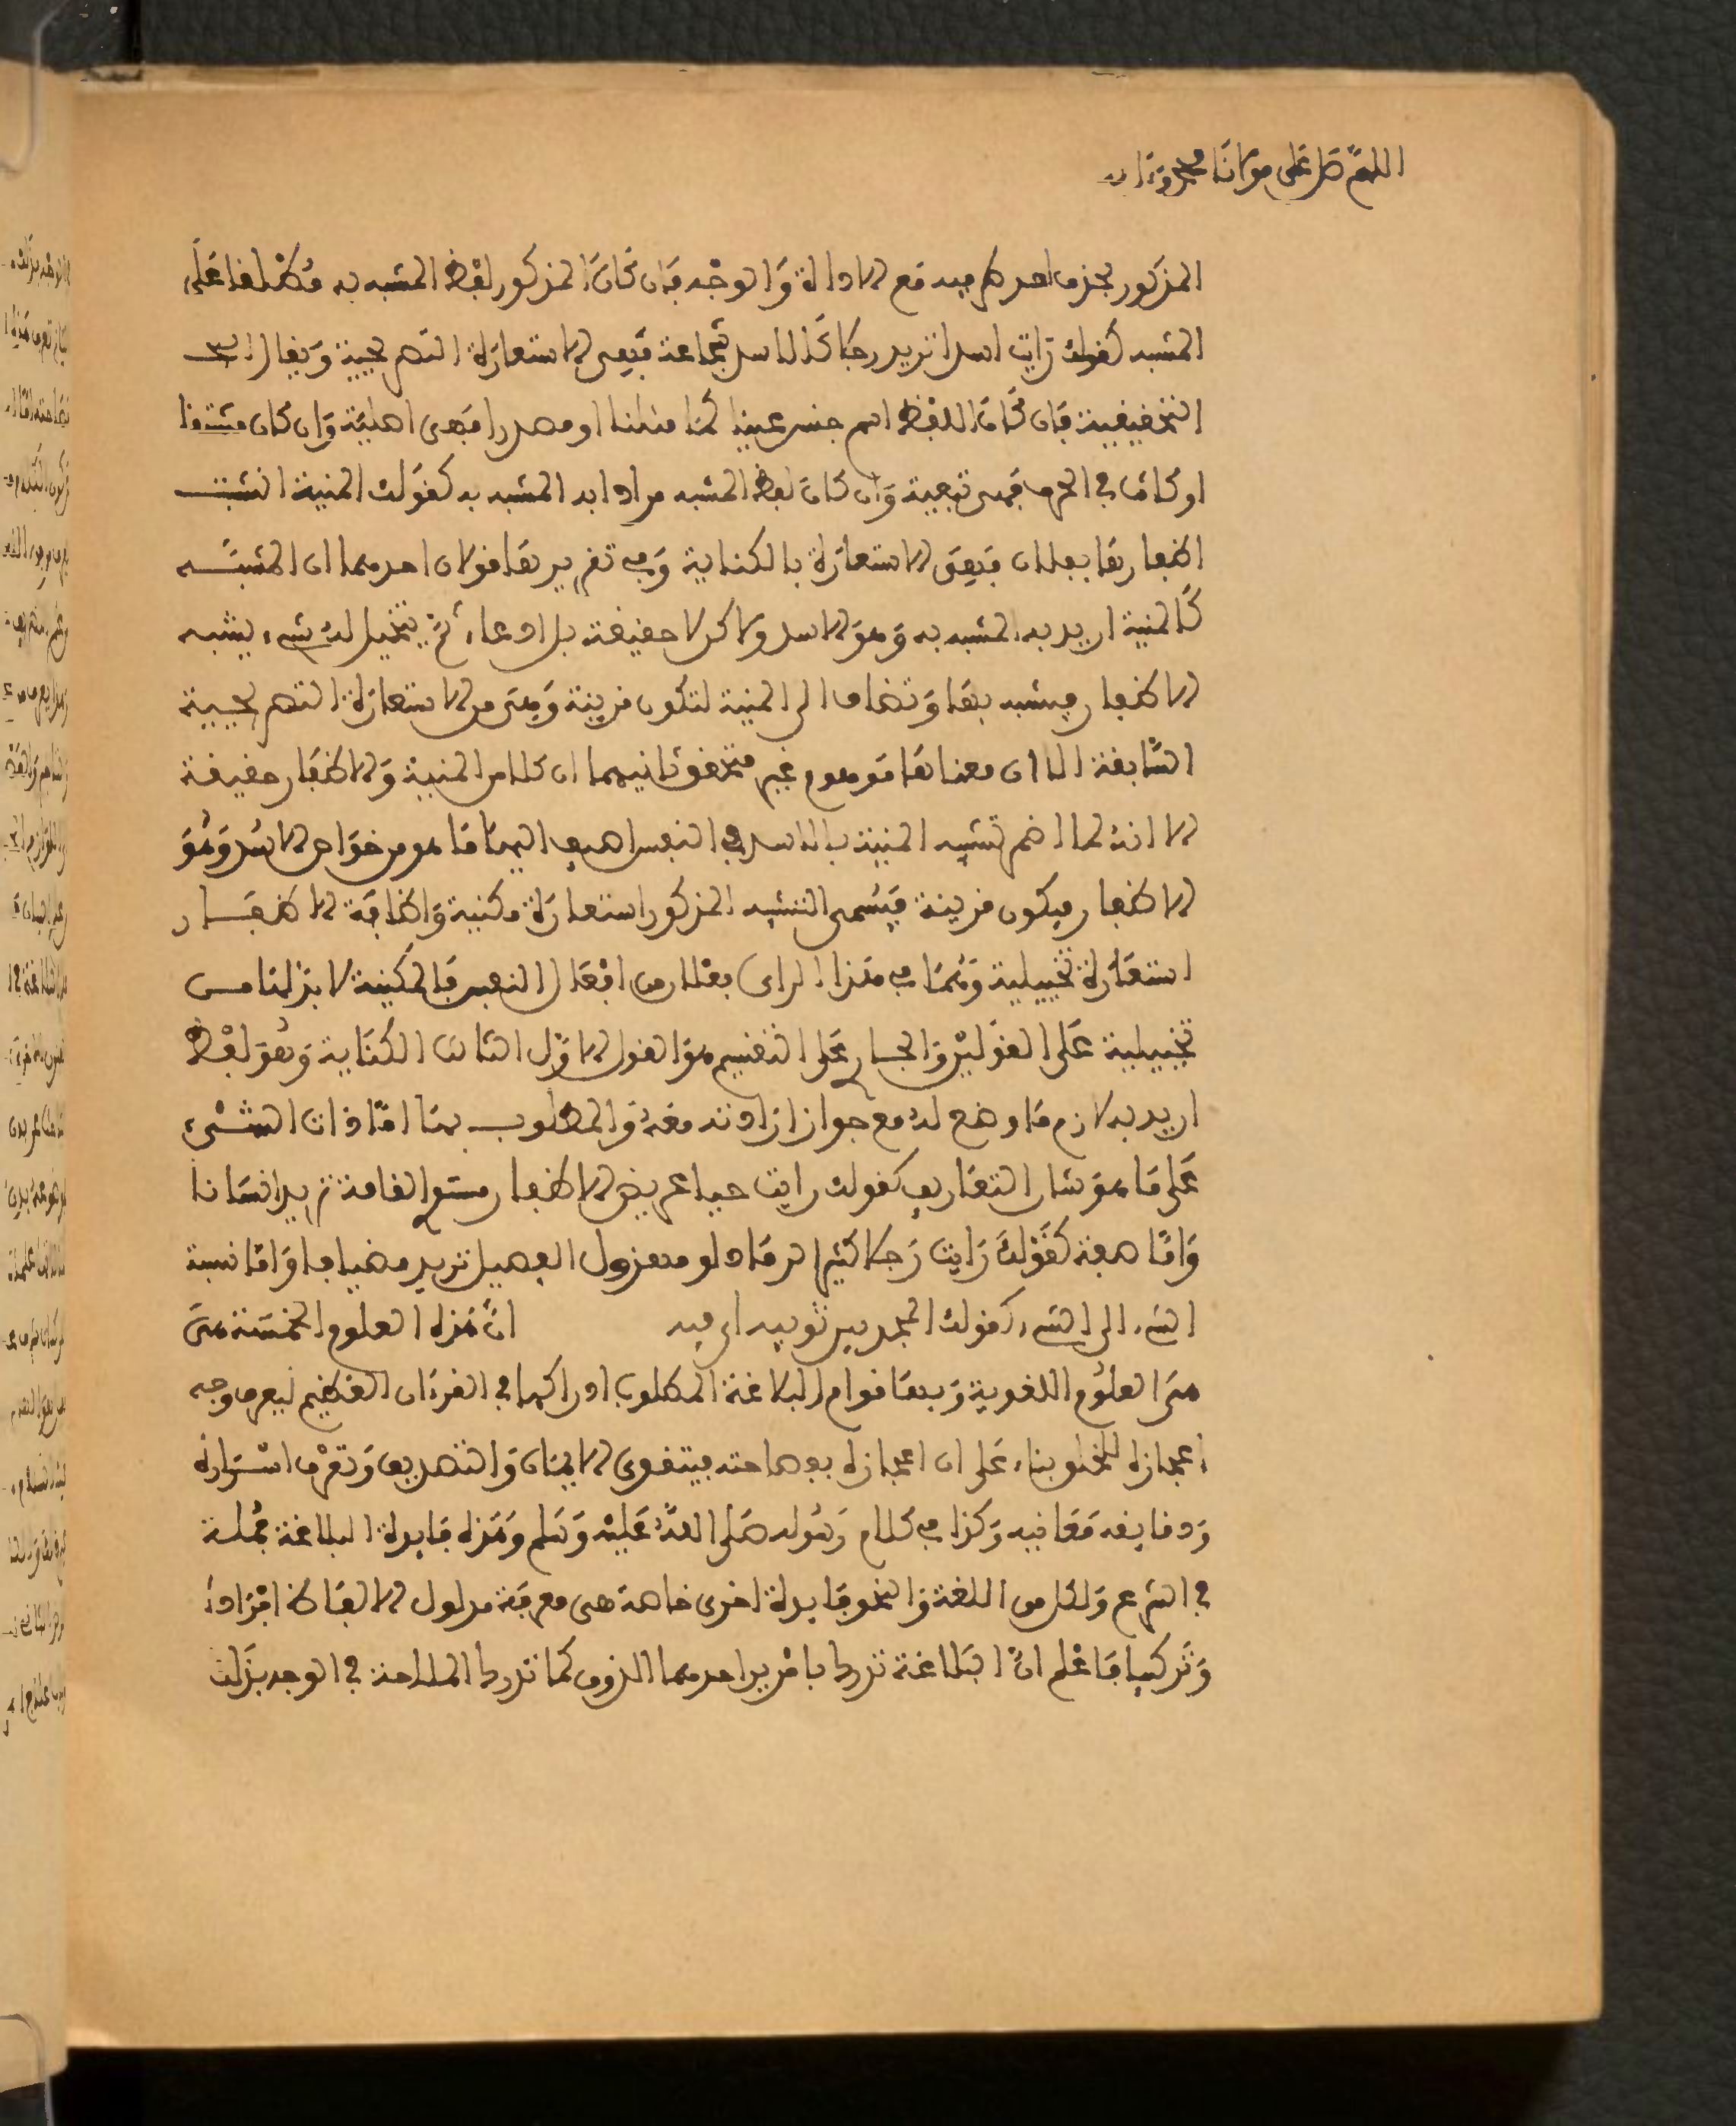 اللهم صل على مولانا محمد وءاله
المذكور بحذف احد طرفيه مع الاداة والوجه فان كان المذكور لفظ المشبه به مطلقا على
المشبه كقولك رأيت اسدا تريد رجلا كالاسد شجاعة فهى الاستعارة التصريحية ويقال لها
التحقيقية فان كان اللفظ اسم جنس عينا كما مثلنا او مصدرا فهى اصلية وان كان مشتقا
او كائنا فى الحرف فهى تبعية وان كان لفظ المشبه مرادا به المشبه به كقولك المنية انشبت
اظفارها بفلان فهى الاستعارة بالكناية وفى تقريرها قولان احدهما ان المشبه
كالمنية اريد به المشبه به وهو الاسد ولاكن لا حقيقة بل ادعاء ثم يتخيل له شىء يشبه
الاظفار فيشبه بها وتضاف الى المنية لتكون قرينة وهى من الاستعارة التصريحية
السابقة الا ان معناها موهوم غير متحقق ثانيهما ان كلا من المنية والاظفار حقيقة
الا انه لما اضمر تشبيه المنية بالاسد فى النفس اضيف اليها ما هو من خواص الاسد وهو
الاظفار فيكون قرينة فيسمى التشبيه المذكور استعارة مكنية واضافة الاظفار
استعارة تخييلية وهما فى هذا الراى فعلان من افعال النفس فالمكنية لا بد لها من
تخييلية على القولين والجارى على التقسيم هو القول الاول الثالث الكناية وهو لفظ
اريد به لازم ما وضع له مع جواز ارادته معه والمطلوب بها اما ذات الشىء
على ما هو شان التعاريف كقولك رايت حيا عريض الاظفار مستوى القامة تريد انسانا
واما صفة كقولك رايت رجلا كثير الرماد او مهزول الفصيل تريد مضيافا واما نسبة
الشىء الى الشىء كقولك المجد بين ثوبيه اى فيه ان هذه العلوم الخمسة هى
هى العلوم اللغوية وبها قوام البلاغة المطلوب ادراكها فى القرءان العظيم ليعرف وجه
اعجازه للخلق بناء على ان اعجازه بفصاحته فيتقوى الايمان والتصديق وتعرف اسراره
ودقايقه معانيه وكذا فى كلام رسوله صلى الله عليه وسلم وهذه فايدة البلاغة جملة
فى الشرع ولكل من اللغة والنحو فايدة اخرى خاصة هى معرفة مدلول الالفاظ افرادا
وتركيبا فاعلم ان البلاغة تدرك بامرين احدهما الذوق كما تدرك الملاحة فى الوجه بذلك